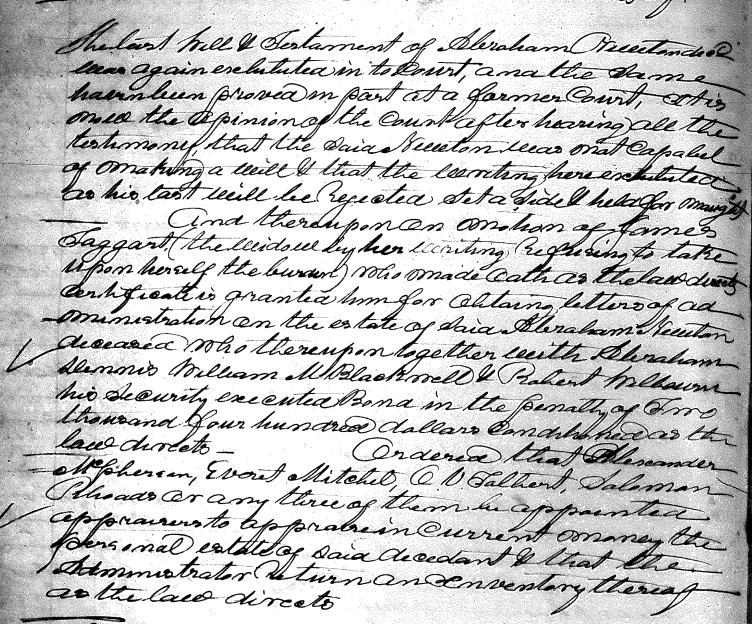 The last Will & Testament of Abraham Newton decd
was again exhibited in to Court, and the same
havn been proved in part at a former Court, it is
now the opinion of the Court after hearing all the
testimony, that the said Newton was not Capabel
of making a will & that the writing here exhibited
as his last will be Rejected Set a side & held for naught
And thereupon on motion of James
Taggart (the widow by her writing Refusing to take
upon herself the burden) who made oath as the law directs
certificate is granted him for obtaing letters of ad
ministration on the estate of said Abraham Newton
deceased who thereupon together with Abraham
Dennis William M Blackwell & Robert
his Security executed Bond in the penalty of Two
thousand four hundred dollars conditioned as the
law directs — Ordered that Alexander
McPherson, Everet Mitchel, O V. Talbert, Saloman
Rhoads or any three of them be appointed
appraisers to appraise in Current money the
personal estate of said decedant & that the
Administrator Return an Inventory thereof
as the law directs